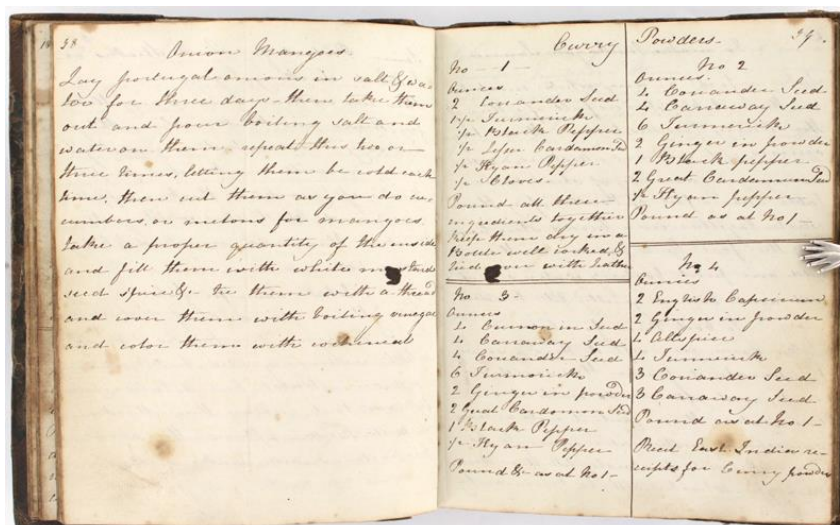 38
Onion Mangoes
Lay portugal onions in salt & wa-
ter for three days - then take them
out and pour boiling salt and
water on them, repeat this two or
three times, letting them be cold each
time, then cut them as you do cu-
cumbers, or melons for mangoes
take a proper quantity of the inside
and fill them with white mustard
seed spice & tie them with a thread
and cover them with boiling vinegar
and color them with cochineal
Curry Powders.
39.
No 1
Ounces
2 Coriander Seed
1½ Turmerick
½ Black Pepper
½ Lesser Cardamom Seed
½ Kyan Pepper
½ Cloves
Pound all these
ingredients together
keep them dry in a
Bottle well corked, &
tied over with leather
No 2
Ounces.
4 Coriander Seed
4 Carraway Seed
6 Turmerick
2 Ginger in powder
1 Black pepper
2 Great Cardamum Seed
½ Kyan pepper
Pound as at No 1 -
No 3
Ounces
4 Cummin Seed
4 Carraway Seed
4 Coriander Seed
6 Turmerick
2 Ginger in powder
2 Great Cardomon Seed
1 Black Pepper
½ Kyan Pepper
Pound & as at No 1 -
No 4
Ounces
2 English Capsicum
2 Ginger in powder
4 Allspice
4 Turmerick
3 Coriander Seed
3 Carraway Seed
Pound as at No 1 -
Real East India re-
ceipts for Curry powder